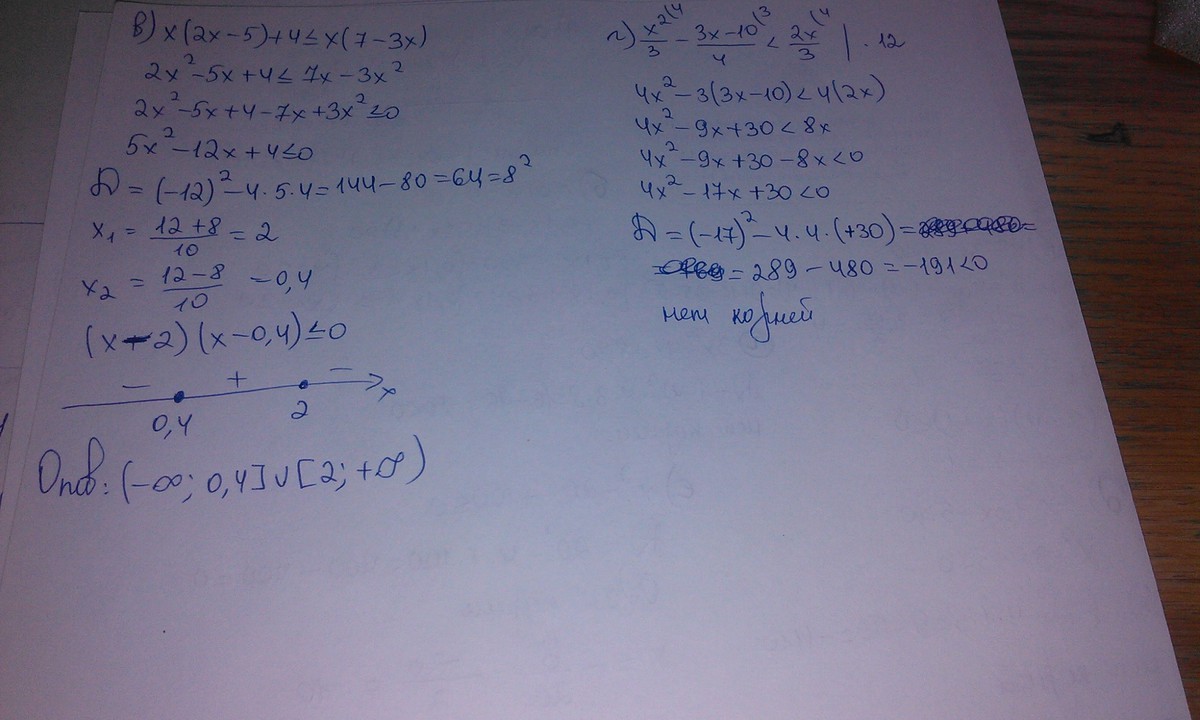 в) x(2x-5)+4≤x(7-3x)
2x²-5x+4≤ 7x-3x²
2x²-5x+4-7x+3x²≤0
5x²-12x+4≤0
D = (-12)²-4·5·4=144-80=64=8²
x₁ = (12+8)/10 = 2
x₂ = (12-8)/10 = 0,4
(x-2)(x-0,4)≤0
- + - x
0,4 2
Отв: (-∞; 0,4]∪[2; +∞)
г) x²⁽⁴/3 - 3x-10⁽³/4 < 2x⁽⁴/3 | · 12
4x²-3(3x-10)<4(2x)
4x²-9x+30<8x
4x²-9x+30-8x<0
4x²-17x+30<0
D=(-17)²-4·4·(+30)=
=289-480=-191<0
нет корней